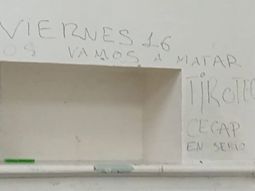 VIERNES 16
OS VAMOS A MATAR
TIROTEO
CECAP
EN SERIO